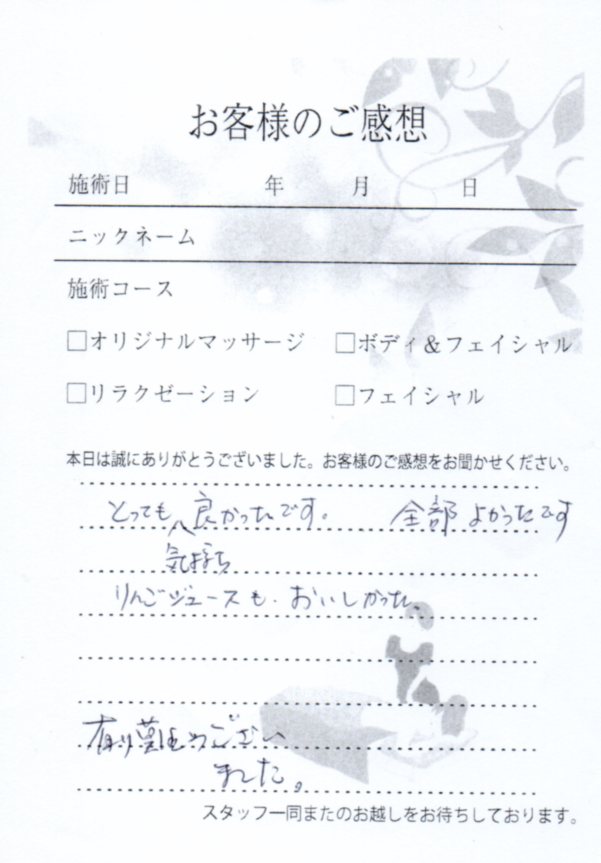 お客様のご感想
施術日 年 月 日
ニックネーム
施術コース
□オリジナルマッサージ □ボディ&フェイシャル
□リラクゼーション □フェイシャル
本日は誠にありがとうございました。お客様のご感想をお聞かせください。
とっても 良かったです。 全部よかったです
気持ち
りんごジュースも おいしかった。
ござい
ました。
スタッフ一同またのお越しをお待ちしております。